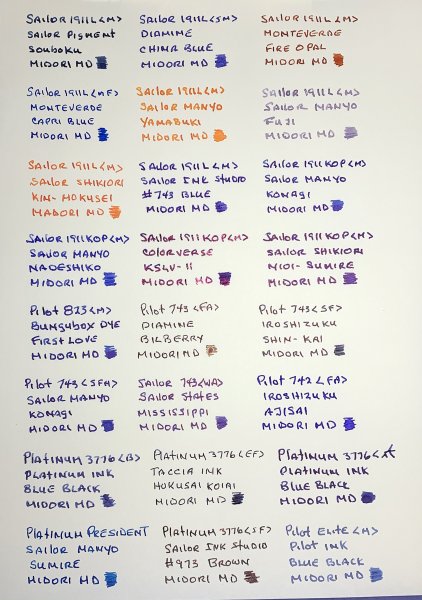 Sailor 1911L <M>
Sailor Pigment
Souboku
MIDORI MD
Sailor 1911L <SM>
DIAMINE
CHINA BLUE
MIDORI MD
Sailor 1911L <M>
MONTEVERDE
FIRE OPAL
MIDORI MD
Sailor 1911L <MF>
MONTEVERDE
CAPRI BLUE
MIDORI MD
Sailor 1911L <M>
SAILOR MANYO
YAMABUKI
MIDORI MD
Sailor 1911L <M>
SAILOR MANYO
FUJI
MIDORI MD
Sailor 1911L <M>
SAILOR SHIKIORI
KIN-MOKUSEI
MADORI MD
Sailor 1911L <M>
Sailor INK Studio
#743 BLUE
MIDORI MD
Sailor 1911KOP <M>
Sailor MANYO
KONAGI
MIDORI MD
Sailor 1911KOP <M>
SAILOR MANYO
NADESHIKO
MIDORI MD
Sailor 1911KOP <M>
COLORVERSE
KSLV-II
MIDORI MD
Sailor 1911KOP <M>
SAILOR SHIKIORI
NIOI-SUMIRE
MIDORI MD
Pilot 823 <M>
Bungubox DYE
FIRST LOVE
MIDORI MD
Pilot 743 <FA>
DIAMINE
BILBERRY
MIDORI MD
Pilot 743 <SF>
IROSHIZUKU
SHIN-KAI
MIDORI MD
Pilot 743 <SFM>
SAILOR MANYO
KONAGI
MIDORI MD
SAILOR 743 <WA>
SAILOR STATES
MISSISSIPPI
MIDORI MD
Pilot 742 <FA>
IROSHIZUKU
AJISAI
MIDORI MD
PLATINUM 3776 <B>
PLATINUM INK
BLUE BLACK
MIDORI MD
PLATINUM 3776 <EF>
TACCIA INK
HOKUSAI KOIAI
MIDORI MD
PLATINUM 3776
PLATINUM INK
BLUE BLACK
MIDORI MD
PLATINUM PRESIDENT
SAILOR MANYO
SUMIRE
MIDORI MD
PLATINUM 3776 <SF>
SAILOR INK STUDIO
#973 BROWN
MIDORI MD
Pilot Elite <M>
Pilot INK
BLUE BLACK
MIDORI MD